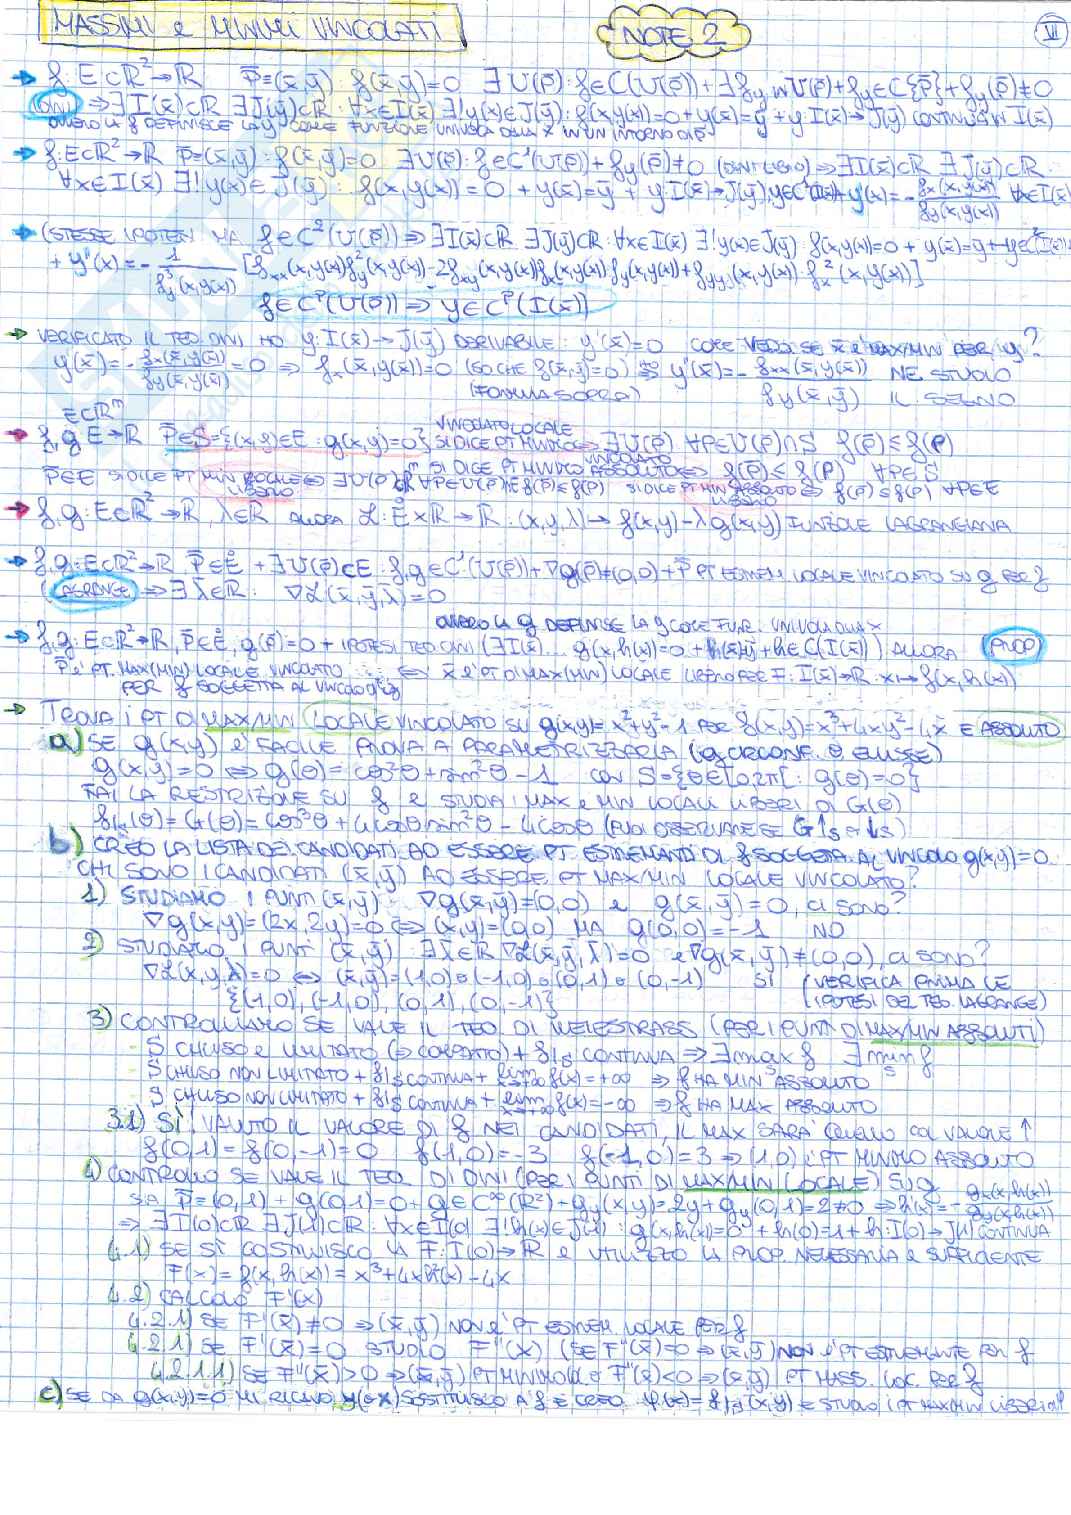 MASSIMI e MINIMI VINCOLATI
NOTE 2
VII
→ f: E⊂R²→R P̄=(x̄,ȳ) f(x̄,ȳ)=0 ∃U(P̄): f∈C(U(P̄)) + ∃f_y in U(P̄) + f_y∈C{P̄} + f_y(P̄)≠0
(DINI) ⇒ ∃I(x̄)⊂R ∃J(ȳ)⊂R: ∀x∈I(x̄) ∃!y(x)∈J(ȳ): f(x,y(x))=0 + y(x̄)=ȳ + y: I(x̄)→J(ȳ) CONTINUA IN I(x̄)
OVVERO LA f DEFINISCE LA y COME FUNZIONE UNIVOCA DELLA x IN UN INTORNO DI P̄
→ f: E⊂R²→R P̄=(x̄,ȳ): f(x̄,ȳ)=0 ∃U(P̄): f∈C¹(U(P̄)) + f_y(P̄)≠0 ⇒ ∃I(x̄)⊂R ∃J(ȳ)⊂R:
∀x∈I(x̄) ∃!y(x)∈J(ȳ): f(x,y(x))=0 + y(x̄)=ȳ + y: I(x̄)→J(ȳ) y∈C¹(I(x̄)) + y'(x)=-f_x(x,y(x))/f_y(x,y(x)) ∀x∈I(x̄)
→ (STESSE IPOTESI MA f∈C²(U(P̄)) ⇒ ∃I(x̄)⊂R ∃J(ȳ)⊂R: ∀x∈I(x̄) ∃!y(x)∈J(ȳ): f(x,y(x))=0 + y(x̄)=ȳ + y∈C²(I(x̄))
+ y''(x)=-1/f_y³(x,y(x)) [f_xx(x,y(x))f_y²(x,y(x))-2f_xy(x,y(x))f_x(x,y(x))f_y(x,y(x))+f_yy(x,y(x))·f_x²(x,y(x))]
f∈C^p(U(P̄)) ⇒ y∈C^p(I(x̄))
→ VERIFICATO IL TEO DINI HO y: I(x̄)→J(ȳ) DERIVABILE: y'(x̄)=0 COME VEDO SE x̄ È MAX/MIN PER y?
y'(x̄)=-f_x(x̄,y(x̄))/f_y(x̄,y(x̄))=0 ⇒ f_x(x̄,y(x̄))=0 (SO CHE f(x̄,ȳ)=0) ⇒ y''(x̄)=-f_xx(x̄,y(x̄))/f_y(x̄,ȳ) NE STUDIO IL SEGNO
(FORMULA SOPRA)
E⊂R^m
→ f,g: E→R P̄∈S={(x,y)∈E: g(x,y)=0} SI DICE PT MINIMO VINCOLATO LOCALE ⇔ ∃U(P̄) ∀P∈U(P̄)∩S f(P̄)≤f(P)
SI DICE PT MINIMO VINCOLATO ASSOLUTO ⇔ f(P̄)≤f(P) ∀P∈S
P̄∈E SI DICE PT MIN LOCALE LIBERO ⇔ ∃U(P̄)⊂R^m ∀P∈U(P̄)∩E f(P̄)≤f(P) SI DICE PT MIN ASSOLUTO LIBERO ⇔ f(P̄)≤f(P) ∀P∈E
→ f,g: E⊂R²→R, λ∈R ALLORA ℒ: E×R→R: (x,y,λ)→f(x,y)-λg(x,y) FUNZIONE LAGRANGIANA
→ f,g: E⊂R²→R P̄∈E̊ + ∃U(P̄)⊂E: f,g∈C¹(U(P̄)) + ∇g(P̄)≠(0,0) + P̄ PT ESTREM. LOCALE VINCOLATO SU g PER f
(LAGRANGE) ⇒ ∃λ̄∈R: ∇ℒ(x̄,ȳ,λ̄)=0
OVVERO LA g DEFINISCE LA y COME FUN. UNIVOCA DI x
→ f,g: E⊂R²→R, P̄∈E̊, g(P̄)=0 + IPOTESI TEO DINI (∃I(x̄)... g(x,h(x))=0 + h(x̄)=ȳ + h∈C(I(x̄)) ALLORA (PROP)
P̄ È PT MAX(MIN) LOCALE VINCOLATO ⇔ x̄ È PT DI MAX(MIN) LOCALE LIBERO PER F: I(x̄)→R: x→f(x,h(x))
PER f SOGGETTA AL VINCOLO g
→ TROVA I PT DI MAX/MIN LOCALE VINCOLATO SU g(x,y)=x²+y²-1 PER f(x,y)=x³+4xy²-4x E ASSOLUTO
a) SE g(x,y) È FACILE PROVA A PARAMETRIZZARLA (g CIRCONF. O ELLISSE)
g(x,y)=0 ⇔ g(θ)=cos²θ+sin²θ-1 CON S={θ∈[0,2π[: g(θ)=0}
FAI LA RESTRIZIONE SU f E STUDIA I MAX E MIN LOCALI LIBERI DI G(θ)
f|_S(θ)=G(θ)=cos³θ+4cosθsin²θ-4cosθ (PUOI OSSERVARE SE G↑_S o ↓_S)
b) CREO LA LISTA DEI CANDIDATI AD ESSERE PT. ESTREMANTI DI f SOGGETTA AL VINCOLO g(x,y)=0.
CHI SONO I CANDIDATI (x̄,ȳ) AD ESSERE PT MAX/MIN LOCALE VINCOLATO?
1) STUDIAMO I PUNTI (x̄,ȳ): ∇g(x̄,ȳ)=(0,0) e g(x̄,ȳ)=0, CI SONO?
∇g(x,y)=(2x,2y)=0 ⇔ (x,y)=(0,0) MA g(0,0)=-1 NO
2) STUDIAMO I PUNTI (x̄,ȳ): ∃λ̄∈R ∇ℒ(x̄,ȳ,λ̄)=0 e ∇g(x̄,ȳ)≠(0,0), CI SONO?
∇ℒ(x,y,λ)=0 ⇔ (x̄,ȳ)=(1,0) o (-1,0) o (0,1) o (0,-1) SI (VERIFICA PRIMA LE
{(1,0),(-1,0),(0,1),(0,-1)} IPOTESI DEL TEO. LAGRANGE)
3) CONTROLLIAMO SE VALE IL TEO DI WEIESTRASS (PER I PUNTI DI MAX/MIN ASSOLUTI)
- S CHIUSO E LIMITATO (⇒ COMPATTO) + f|_S CONTINUA ⇒ ∃max_S f ∃min_S f
- S CHIUSO NON LIMITATO + f|_S CONTINUA + lim_{x→∞} f(x)=+∞ ⇒ f HA MIN ASSOLUTO
- S CHIUSO NON LIMITATO + f|_S CONTINUA + lim_{x→∞} f(x)=-∞ ⇒ f HA MAX ASSOLUTO
3.1) SÌ VALUTO IL VALORE DI f NEI CANDIDATI, IL MAX SARÀ QUELLO COL VALORE ↑
f(0,1)=f(0,-1)=0 f(1,0)=-3 f(-1,0)=3 ⇒ (1,0) È PT MINIMO ASSOLUTO
4) CONTROLLO SE VALE IL TEO DI DINI (PER I PUNTI DI MAX/MIN LOCALE) SU g
SIA P̄=(0,1) + g(0,1)=0 + g∈C^∞(R²) + g_y(x,y)=2y + g_y(0,1)=2≠0 ⇒ h'(x)=-g_x(x,h(x))/g_y(x,h(x))
⇒ ∃I(0)⊂R ∃J(1)⊂R: ∀x∈I(0) ∃!h(x)∈J(1): g(x,h(x))=0 + h(0)=1 + h: I(0)→J(1) CONTINUA
4.1) SE SÌ COSTRUISCO LA F: I(0)→R E UTILIZZO LA PROP. NECESSARIA E SUFFICIENTE
F(x)=f(x,h(x))=x³+4xh²(x)-4x
4.2) CALCOLO F'(x)
4.2.1) SE F'(x̄)≠0 ⇒ (x̄,ȳ) NON È PT ESTREM. LOCALE PER f
4.2.1) SE F'(x̄)=0 STUDIO F''(x) (SE F''(x̄)=0 ⇒ (x̄,ȳ) NON È PT ESTREMANTE PER f
4.2.1.1) SE F''(x̄)>0 ⇒ (x̄,ȳ) PT MINIMO LOC. F''(x̄)<0 ⇒ (x̄,ȳ) PT MASS. LOC. PER f
c) SE DA g(x,y)=0 MI RICAVO y (o x) SOSTITUISCO A f E CREO φ(x)=f|_g(x,y) E STUDIO I PT MAX/MIN LIBERI